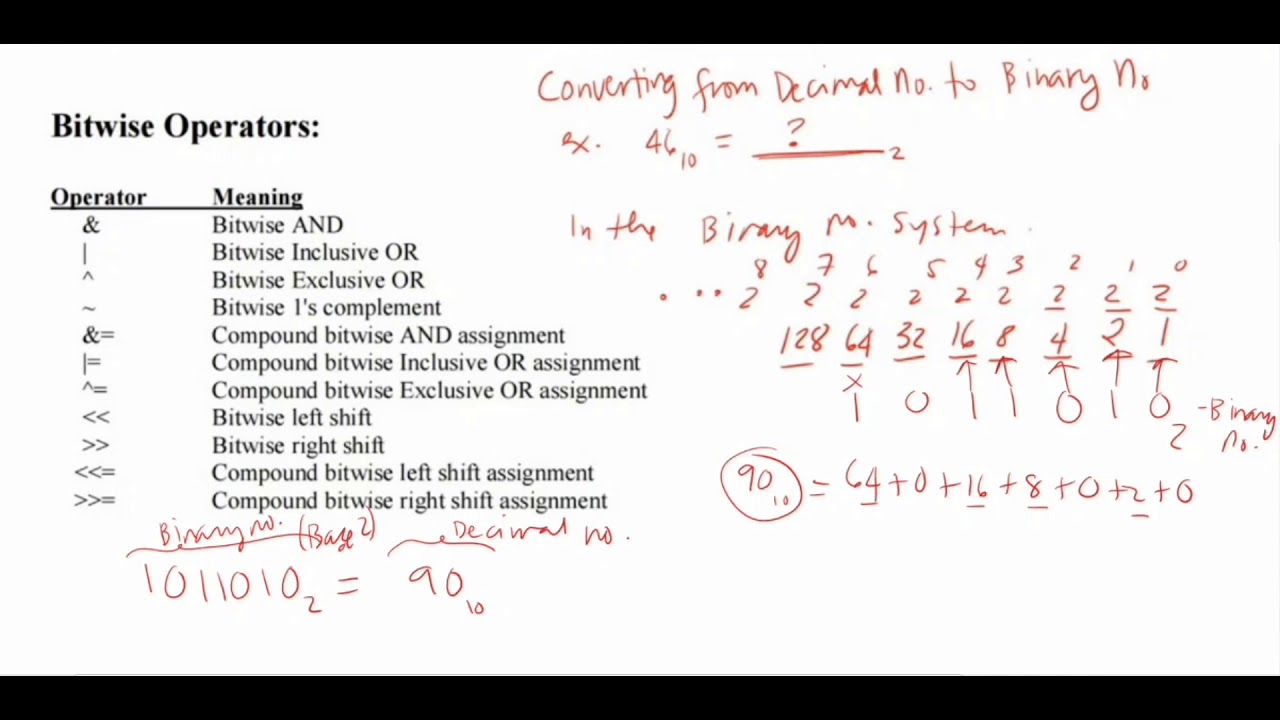 Converting from Decimal No. to Binary No
Bitwise Operators:
ex. 46₁₀ = ?₂
Operator Meaning
& Bitwise AND
| Bitwise Inclusive OR
^ Bitwise Exclusive OR
~ Bitwise 1's complement
&= Compound bitwise AND assignment
|= Compound bitwise Inclusive OR assignment
^= Compound bitwise Exclusive OR assignment
<< Bitwise left shift
>> Bitwise right shift
<<= Compound bitwise left shift assignment
>>= Compound bitwise right shift assignment
In the Binary no. System.
8 7 6 5 4 3 2 1 0
... 2 2 2 2 2 2 2 2 2
128 64 32 16 8 4 2 1
x
1 0 1 1 0 1 0 ₂ - Binary no.
90₁₀ = 64 + 0 + 16 + 8 + 0 + 2 + 0
Binary no. (Base 2) Decimal no.
1011010₂ = 90₁₀